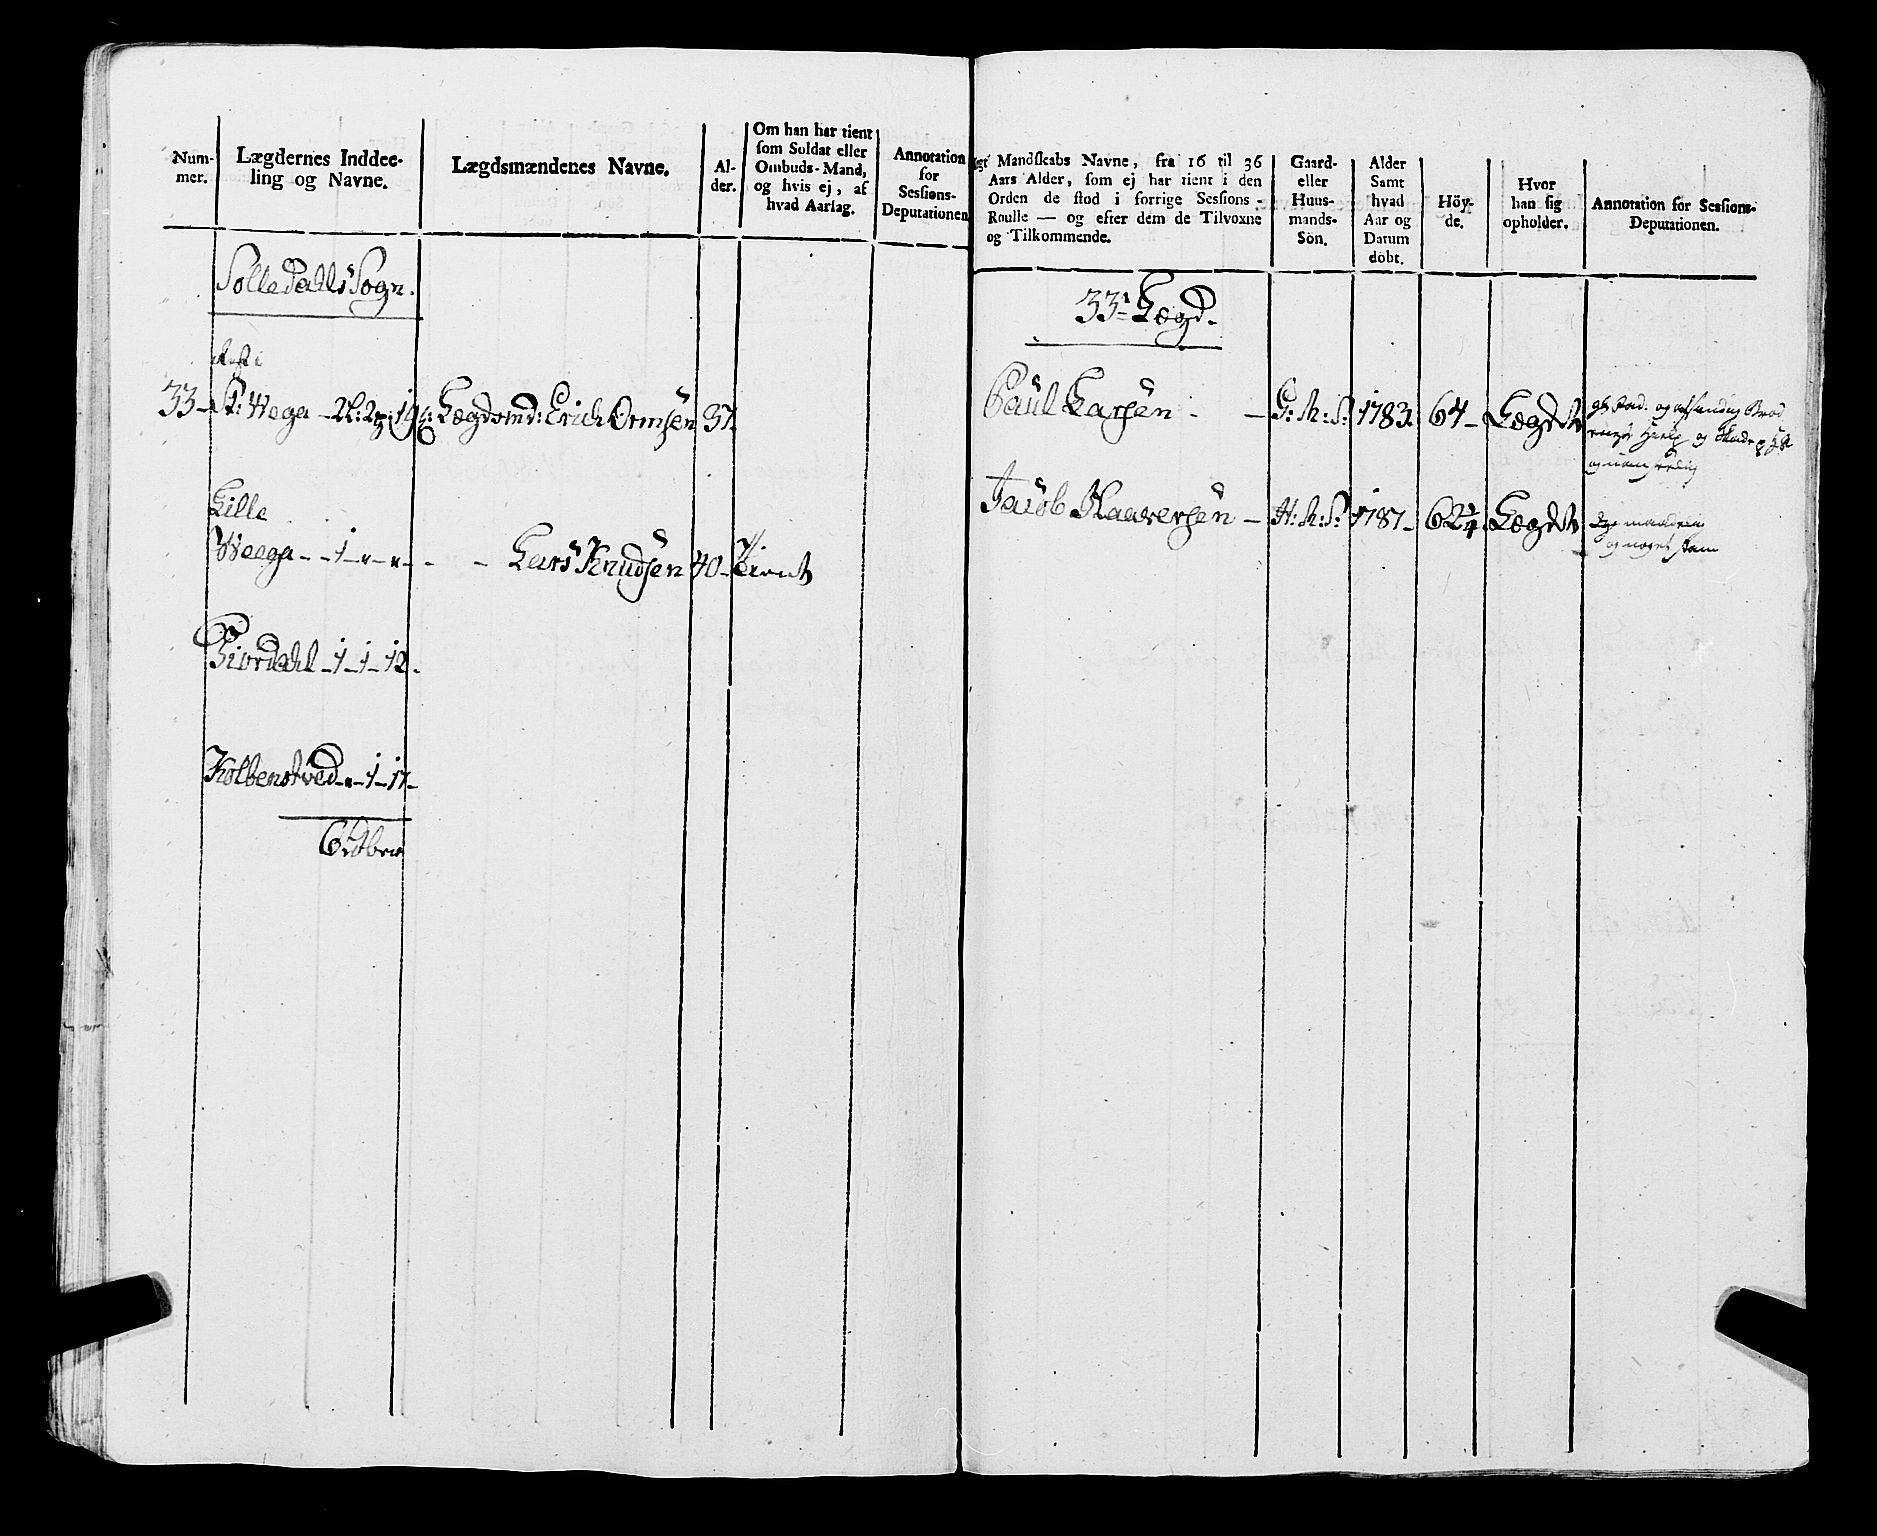 Num-
mer.
Lægdernes Inddee-
ling og Navne.
Lægdsmændenes Navne.
Al-
der.
Om han har tient
som Soldat eller
Ombuds-Mand,
og hvis ej, af
hvad Aarlag.
Annotation
for
Sessions-
Deputationen
Solledahls Sogn.
33
St: Wega
Lægdsmd: Erich Ormsen 37.
Lille
Weega - - 1 - " - " -
Lars Knudsen 40 - Tient
Fiordahl - 1 - 1 - 12 -
Kolbenstved - " - 1 - 17 -
Mandskabs Navne, fra 16 til 36
Aars Alder, som ej har tient i den
Orden de stod i forrige Sessions-
Roulle — og efter dem de Tilvoxne
og Tilkommende.
Gaard-
eller
Huus-
mands-
Sön.
Alder
Samt
hvad
Aar og
Datum
döbt.
Höy-
de.
Hvor
han sig
opholder.
Annotation for Sessions-
Deputationen.
33te Lægd.
Paul Larsen - - G: M: S: 1783. 64 - Lægdet
Jacob Haaversen - H: M: S: 1787 - Lægdet